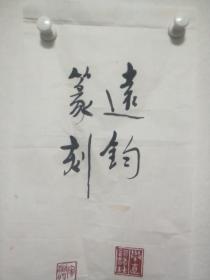 遠鈞
篆刻